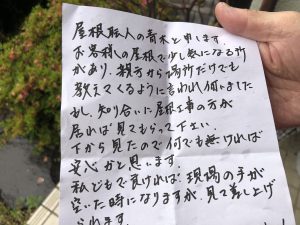 屋根職人の青木と申します。
お客様の屋根で少し気になる所
があり、親方から場所だけでも
教えてくるように言われ伺いました
もし、知り合いに屋根工事の方が
居れば見てもらって下さい。
下から見たので何でも無ければ
安心かと思います。
私どもで良ければ、現場の手が
空いた時になりますが、見て差し上げ
られます。